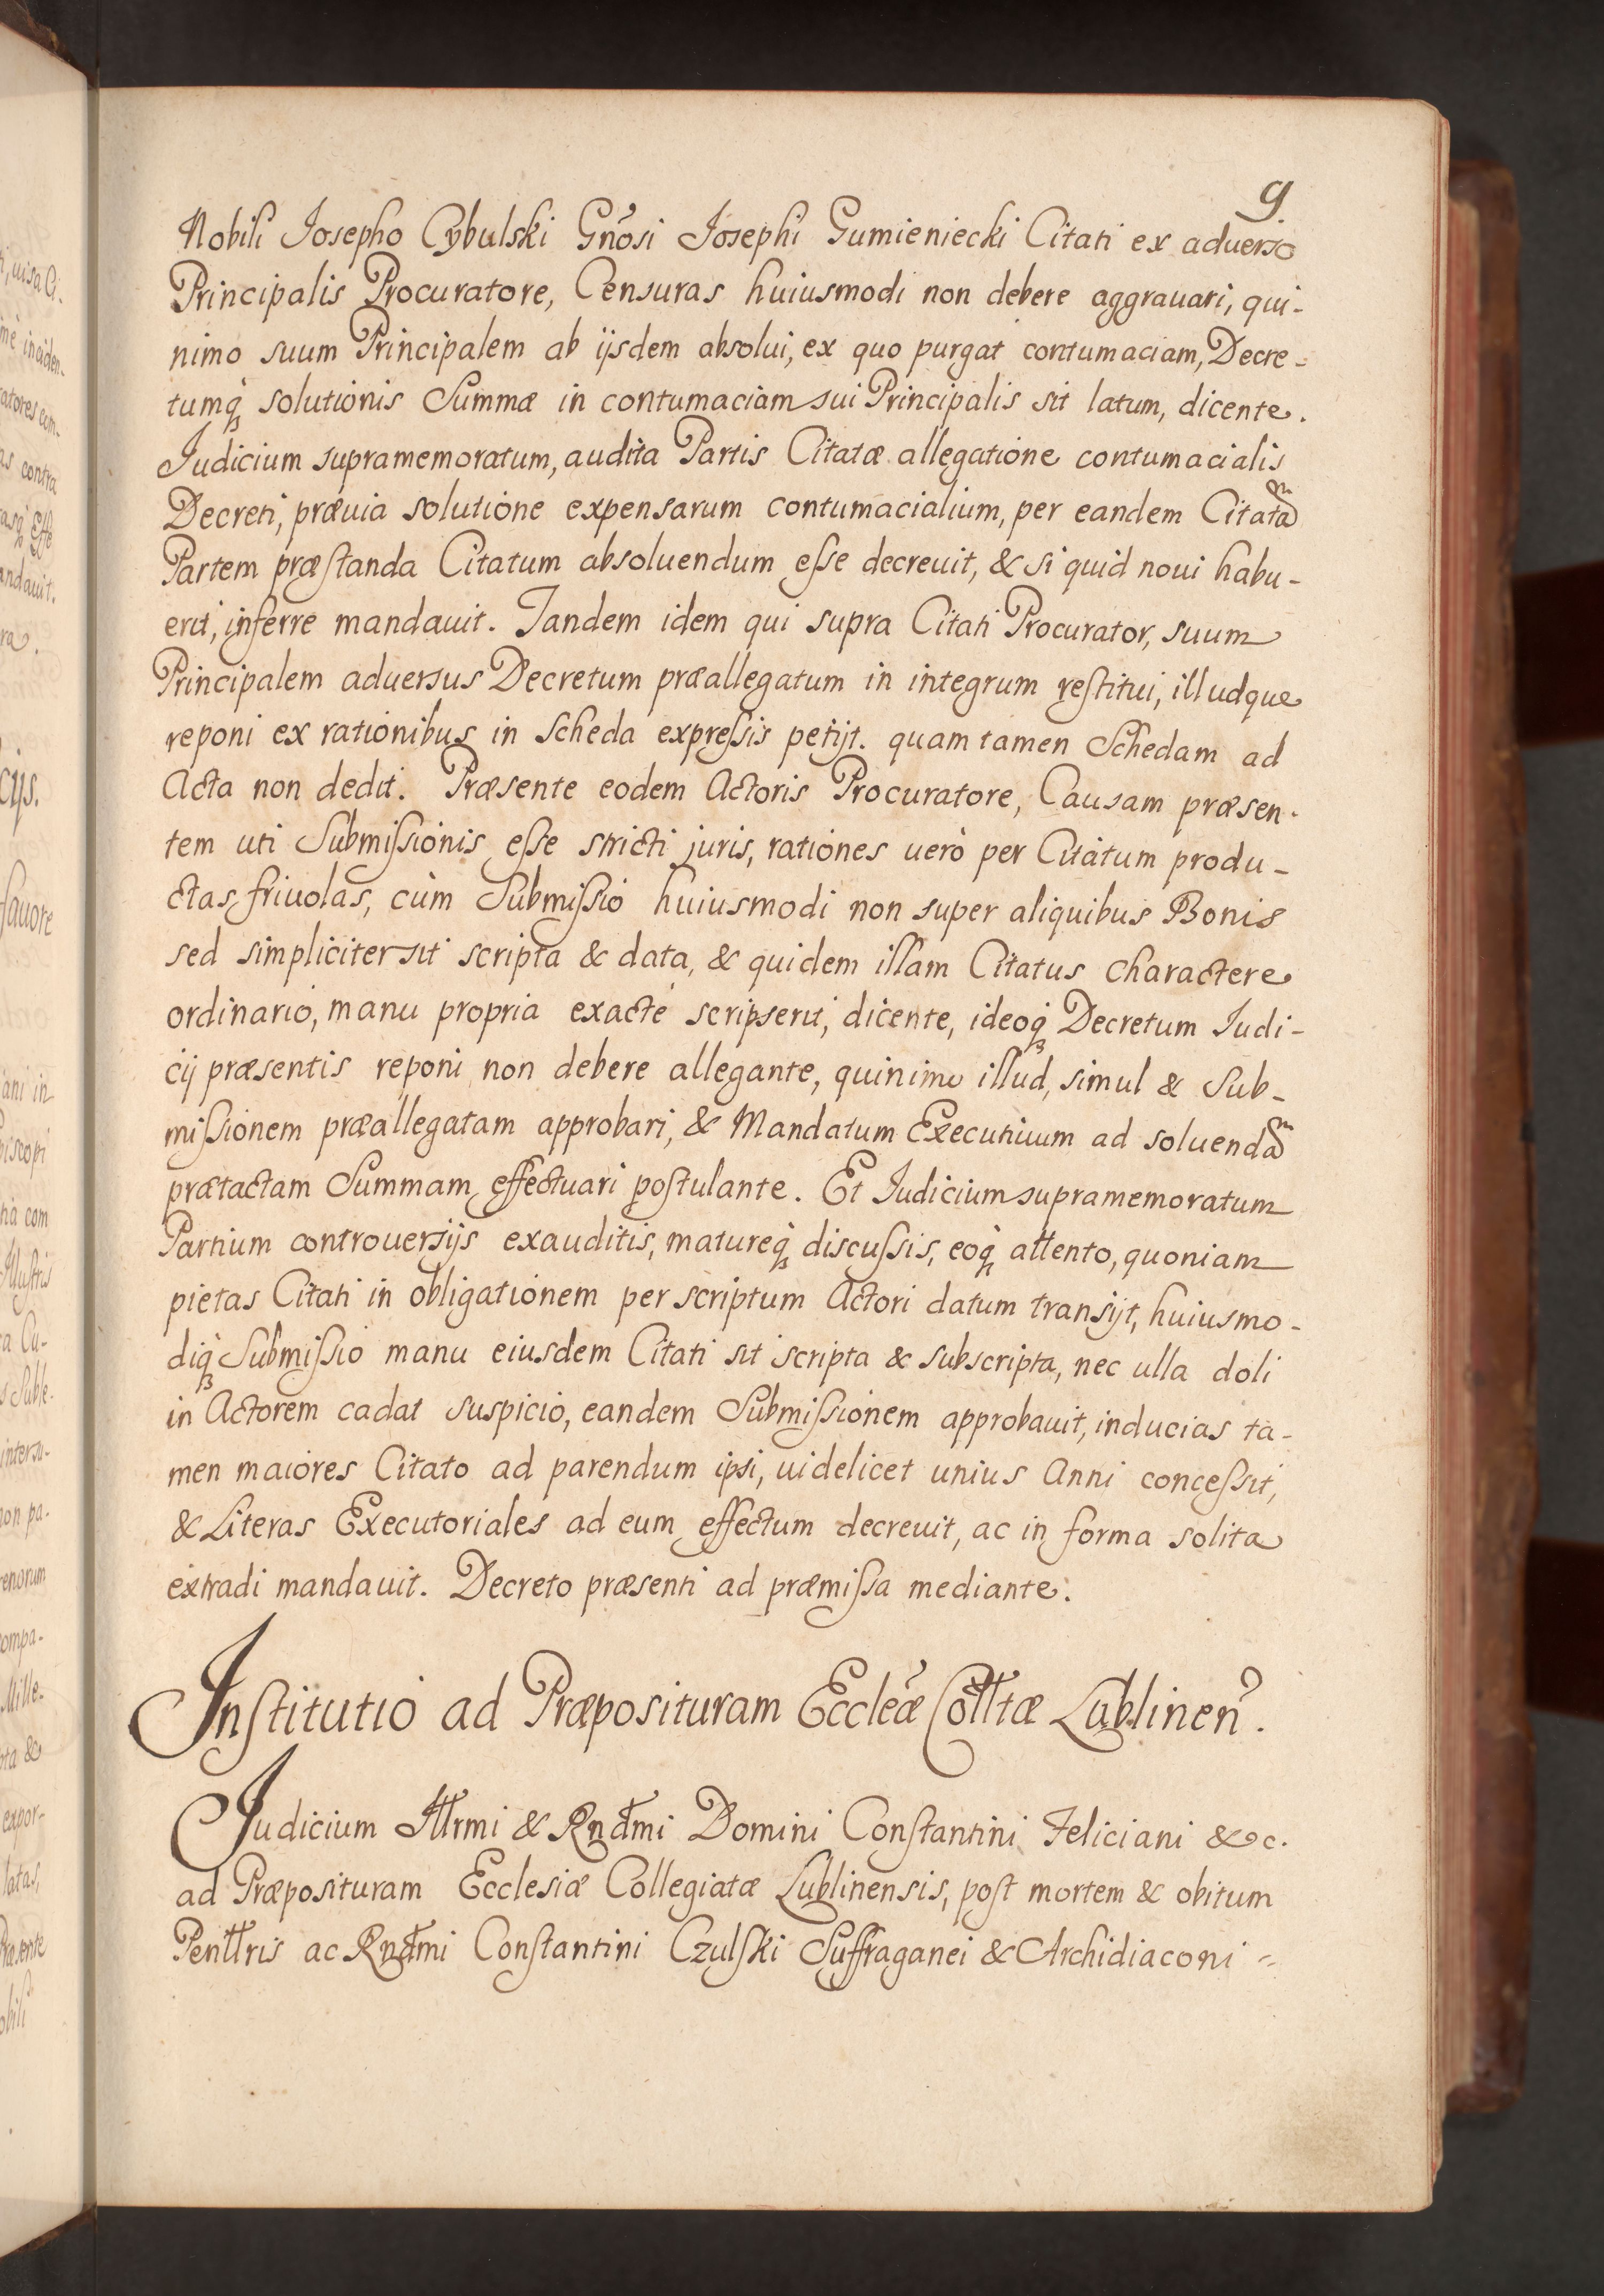 9.
Nobili Josepho Cybulski Gnõsi Josephi Gumieniecki Citati ex aduerso
Principalis Procuratore, Censuras huiusmodi non debere aggrauari, qui-
nimo suum Principalem ab ijsdem absolui, ex quo purgat contumaciam, Decre-
tumq́ solutionis Summæ in contumaciam sui Principalis sit latum, dicente.
Judicium supramemoratum, audita Partis Citatæ allegatione contumacialis
Decreti, præuia solutione expensarum contumacialium, per eandem Citatã
Partem præstanda Citatum absoluendum esse decreuit, & si quid noui habu-
erit, inferre mandauit. Tandem idem qui supra Citati Procurator, suum
Principalem aduersus Decretum præallegatum in integrum restitui, illudque
reponi ex rationibus in Scheda expressis petijt. quam tamen Schedam ad
Acta non dedit. Præsente eodem Actoris Procuratore, Causam præsen-
tem uti Submissionis esse stricti juris, rationes uerò per Citatum produ-
ctas friuolas, cùm Submissio huiusmodi non super aliquibus Bonis
sed simpliciter sit scripta & data, & quidem illam Citatus charactere
ordinario, manu propria exactè scripserit, dicente, ideoq́ Decretum Judi-
cij præsentis reponi non debere allegante, quinimo illud, simul & Sub-
missionem præallegatam approbari, & Mandatum Executiuum ad soluendã
prætactam Summam effectuari postulante. Et Judicium supramemoratum
Partium controuersijs exauditis, matureq́ discussis, eoq́ attento, quoniam
pietas Citati in obligationem per scriptum Actori datum transijt, huiusmo-
diq́ Submissio manu eiusdem Citati sit scripta & subscripta, nec ulla doli
in Actorem cadat suspicio, eandem Submissionem approbauit, inducias ta-
men maiores Citato ad parendum ipsi, uidelicet unius Anni concessit,
& Literas Executoriales ad eum effectum decreuit, ac in forma solita
extradi mandauit. Decreto præsenti ad præmissa mediante.
Institutio ad Præposituram Eccleæ̃ Colltæ Lublinen̉.
Judicium Illrmi & Rndmi Domini Constantini Feliciani &c.
ad Præposituram Ecclesiæ Collegiatæ Lublinensis, post mortem & obitum
Penllris ac Rndmi Constantini Czulski Suffraganei & Archidiaconi =